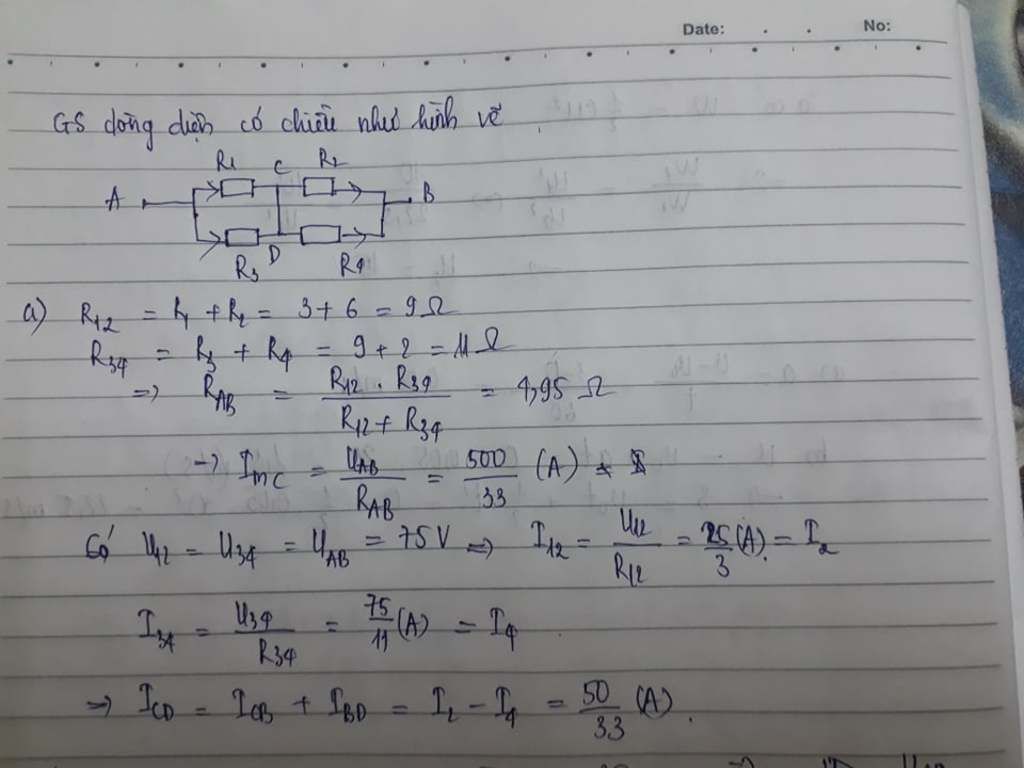 Date: . . No:
GS dòng điện có chiều như hình vẽ
R1 C R2
A B
R3 D R4
a) R12 = R1 + R2 = 3 + 6 = 9Ω
R34 = R3 + R4 = 9 + 2 = 11Ω
=> RAB = R12 . R34 / R12 + R34 = 4,95 Ω
-> Imc = UAB / RAB = 500 / 33 (A)
Có U12 = U34 = UAB = 75V => I12 = U12 / R12 = 25 / 3 (A) = I2
I34 = U34 / R34 = 75 / 11 (A) = I4
=> ICD = ICB + IBD = I2 - I4 = 50 / 33 (A).